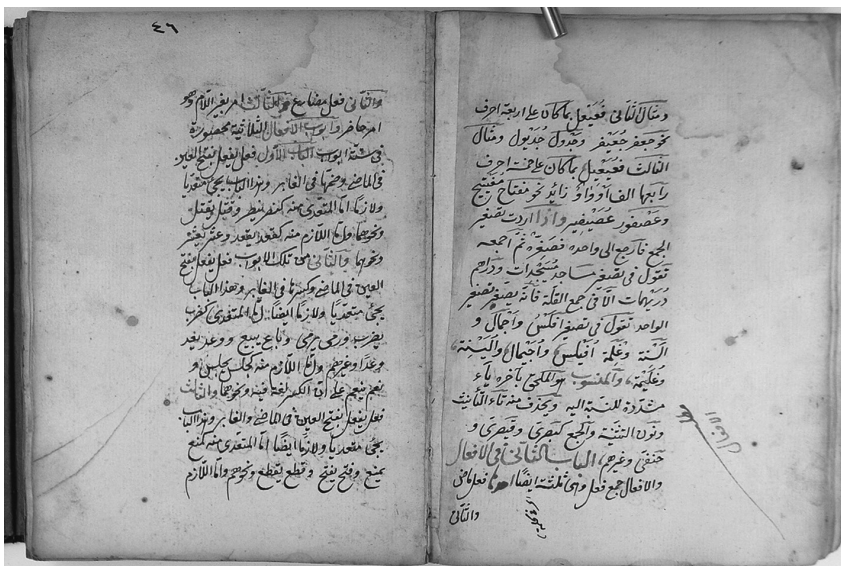 ومثال الثاني فعيعل بما كان على اربعة احرف
نحو جعفر جعيفر وجدول جديول ومثال
الثالث فعيعيل بما كان على خمسة احرف
رابعها الف او واو زائد نحو مفتاح مفيتيح
وعصفور عصيفير واذا اردت تصغير
الجمع فارجع الى واحده فصغره ثم اجمعه
تقول في تصغير مساجد مسيجدات ودراهم
دريهمات الا في جمع القلة فانه يصغر تصغير
الواحد تقول في تصغير افلس واجمال و
السنة وغلمة افيلس واجيمال واليسنة
وغليمة والمنسوب هو الملحق بآخره ياء
مشددة للنسبة اليه ويحذف منه تاء التأنيث
ونون التثنية والجمع كبصرى وقيصرى و
حنفى وغيرهم الباب الثاني في الافعال
والافعال جمع فعل وهى ثلثة ايضا احدها فعل ماض
والثاني
الافعال
٤٦
والثاني فعل مضارع والثالث امر بغير اللام وهو
امر حاضر وابواب الافعال الثلاثية محصورة
في ستة ابواب الباب الاول فعل يفعل بفتح العين
في الماضي وضمها في الغابر وهذا الباب يجئ متعديا
ولازما اما المتعدى منه كنصر ينصر وقتل يقتل
ونحوهما واما اللازم منه كقعد يقعد وعثر يعثر
ونحوهما والثاني من تلك الابواب فعل يفعل بفتح
العين في الماضي وكسرها في الغابر وهذا الباب
يجئ متعديا ولازما ايضا اما المتعدى كضرب
يضرب ورمى يرمى وباع يبيع ووعد يعد
وعدا وغيرهم واما اللازم منه كجلس يجلس و
نعم ينعم على ان الكسر لغة فيه ونحوهما والثالث
فعل يفعل بفتح العين في الماضي والغابر وهذا الباب
يجئ متعديا ولازما ايضا اما المتعدى منه كمنع
يمنع وفتح يفتح وقطع يقطع ونحوهم واما اللازم